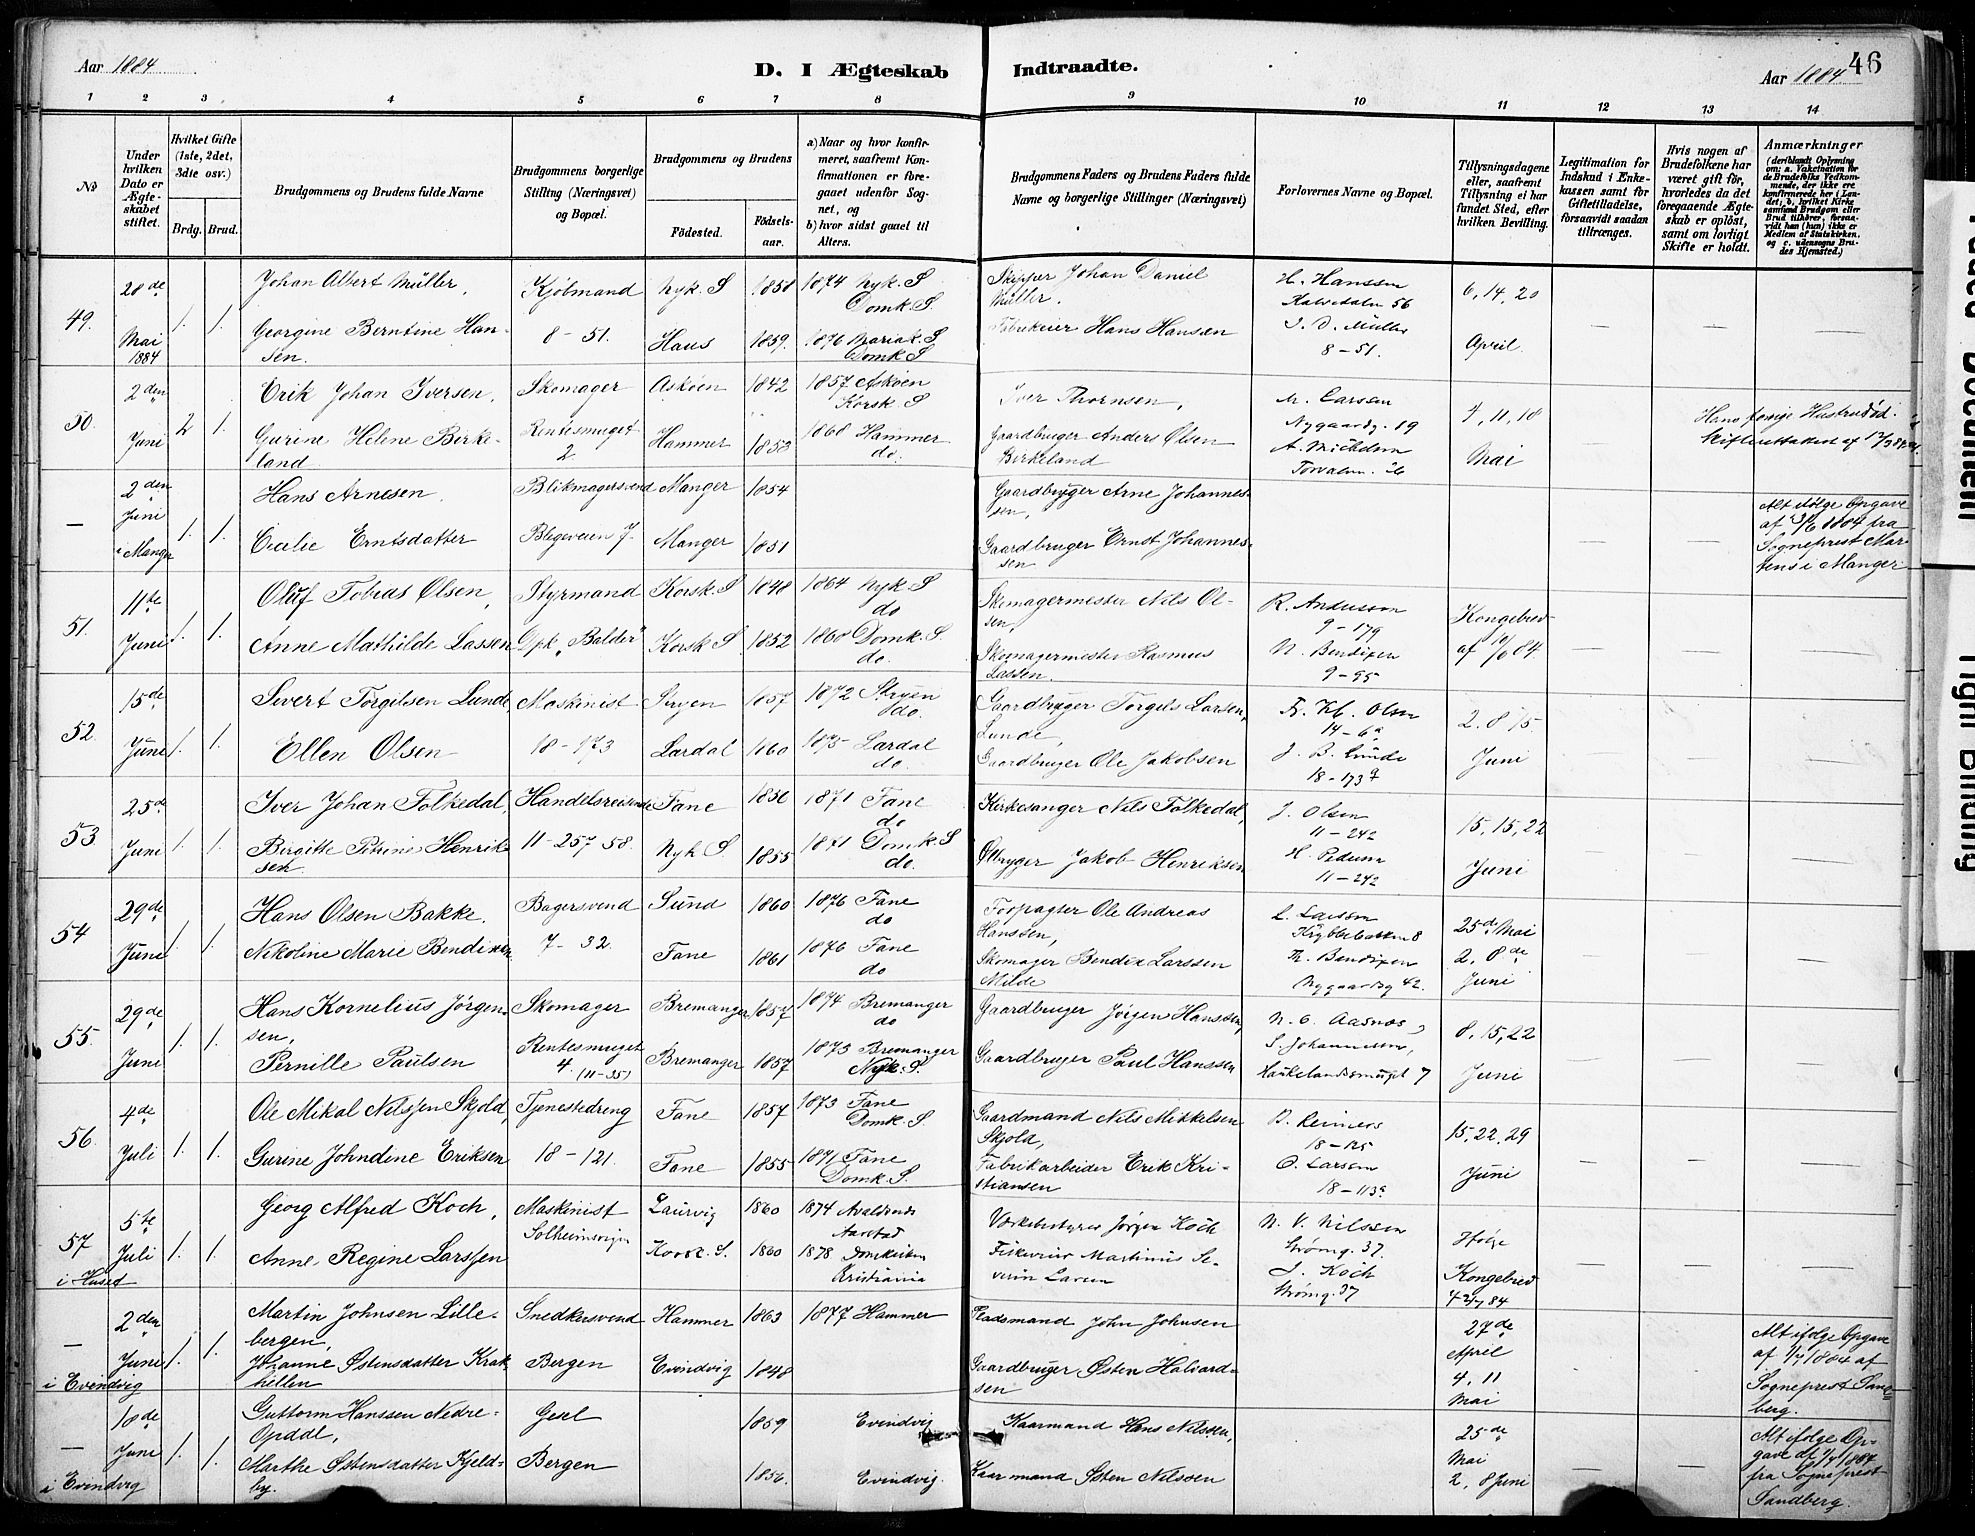 Aar 1884
D. I Ægteskab Indtraadte.
Aar 1884.
46
1 2 3 4 5 6 7 8 9 10 11 12 13 14
No
Under hvilken Dato er Ægteskabet stiftet.
Hvilket Gifte (1ste, 2det, 3die osv.)
Brdg. Brud.
Brudgommens og Brudens fulde Navne
Brudgommens borgerlige Stilling (Næringsvei) og Bopæl.
Brudgommens og Brudens
Fødested.
Fødselsaar.
a) Naar og hvor konfirmeret, saafremt Konfirmationen er foregaaet udenfor Sognet, og
b) hvor sidst gaaet til Alters.
Brudgommens Faders og Brudens Faders fulde Navne og borgerlige Stillinger (Næringsvei)
Forlovernes Navne og Bopæl.
Tillysningsdagene eller, saafremt Tillysning ei har fundet Sted, efter hvilken Bevilling.
Legitimation for Indskud i Enkekassen samt for Giftetilladelse, forsaavidt saadan tiltrænges.
Hvis nogen af Brudefolkene har været gift før, hvorledes da det foregaaende Ægteskab er opløst, samt om lovligt Skifte er holdt.
Anmærkninger
(deriblandt Oplysning om: a. Vakcination for de Brudefolks Vedkommende, der ikke ere konfirmerede her i Landet; b. hvilket Kirkesamfund Brudgom eller Brud tilhører, forsaavidt han (hun) ikke er Medlem af Statskirken, og c. udensogns Brudes Hjemsted.)
49. 28de Mai 1884 1. 1.
Johan Albert Müller, Kjöbmand Nyk. S 1858 1874 Nyk. S Domk. S. Skipper Johan Daniel Müller.
Georgine Berntine Hansen. 8-51. Haus 1859. 1876 Mariak. S Domk S Hans Hansen
H. Hanssen Kalvedalen 56
J. D. Müller 8-51.
6, 14, 20 April.
50. 2den Juni 2 1.
Erik Johan Iversen, Skomager Askøen 1842 1857 Askøen Korsk. S Iver Thornsen,
Gurine Helene Birkeland Rentesmuget 2 Hammer 1853 1868 Hammer do. Gaardbruger Anders Olsen Birkeland
M. Larsen Nygaardg. 19
A. Michelsen
4, 11, 18 Mai
Hans forrige Hustru død.
— 2den Juni i Manger 1. 1.
Hans Arnesen. Blikmagersvend Manger 1854 Gaardbruger Arne Johannessen,
Cecilie Erntsdatter Blegeveien 7. Manger 1851 Gaardbruger Ernst Johannessen
Alt ifølge Opgave af 1884 fra Sogneprest Martens i Manger
51. 11te Juni 1. 1.
Oluf Tobias Olsen, Styrmand Korsk. S 1848 1864 Nyk. S do Skomagermester Nils Olsen,
Anne Mathilde Lassen Dpk „Balder" Korsk S 1852 1868 Domk. S. do. Skomagermester Rasmus Lassen.
R. Andersen 9-179
N. Bendixen 9-95
Kongebrev af 10/6 84.
52. 15de Juni 1. 1.
Sivert Torgilsen Lunde, Maskinist Stryen 1857 1872 Stryen do. Gaardbruger Torgils Larsen Lunde,
Ellen Olsen 18-173 Lardal 1860 1875 Lardal do. Gaardbruger Ole Jakobsen
Fr. Kl. Olsen 14-6a
J. B. Lunde 18-173a
2. 8 15 Juni
53 25de Juni 1. 1.
Iver Johan Folkedal, Handelsreisende Fane 1856 1871 Fane do Kirkesanger Nils Folkedal,
Birgitte Petrine Henriksen 11-257 58. Nyk S. 1855 1871 Domk. S do. Ølbryger Jakob Henriksen
J. Olsen 11-242
H. Pedersen 11-242
15, 15, 22 Juni
54 29de Juni 1. 1.
Hans Olsen Bakke. Bagersvend Sund 1860 1876 Fane do Forpagter Ole Andreas Hanssen,
Nikoline Marie Bendixen 7-32. Fane 1861 1876 Fane do Skomager Bendix Larssen Milde
L. Larssen Krybbebakken 8
Th. Bendixen Nygaardsg 42.
25de Mai 2. 8de Juni
55. 29de Juni 1. 1.
Hans Kornelius Jörgensen, Skomager Bremanger 1857 1874 Bremanger do Gaardbruger Jörgen Hanssen,
Pernille Paulsen Rentesmuget 4 (11-35) Bremanger 1857 1873 Bremanger Nyk. S. Gaardbruger Paul Hanssen
N. C. Aasnæs,
S. Johannessen, Haukelandsmuget 7
8, 15, 22 Juni
56. 4de Juli 1. 1.
Ole Mikal Nilssen Skjold, Tjenestedreng Fane 1857 1873 Fane Domk. S. Gaardmand Nils Mikkelsen Skjold,
Gurine Johndine Eriksen 18-121. Fane 1855 1871 Fane Domk. S. Fabrikarbeider Erik Kristiansen
B. Reimers 18-125
O. Larsen 18-113a
15, 22, 29 Juni
57 5te Juli i Huset 1. 1.
Georg Alfred Koch, Maskinist Laurvig 1860 1874 Aarstad Værkebestyrer Jørgen Koch
Anne Regine Larssen Solheimsvigen Korsk. S. 1860 1878 Domkirken Kristiania Martinus Severin Larsen
N. V. Nilssen Strømg. 37.
J. Koch Strømg. 37
Ifølge Kongebrev
— 2den Juni i Evindvig 1. 1.
Martin Johnsen Lillebergen, Snedkersvend Hammer 1863 1877 Hammer Pladsmand John Johnsen
Johanne Østensdatter Krakhellen Bergen Evindvig 1848 Gaardbruger Østen Halvardsen
27de April 4. 11 Mai
Alt ifølge Opgave af 1/7 1884 af Sogneprest Sandberg.
— 18de Juni i Evindvig 1. 1.
Guttorm Hanssen Nedre-Opdal, Gesel 1859 Evindvig Kaarmand Hans Nilssen,
Marthe Østensdatter Kjeldby. Bergen 1856. Evindvig. Kaarmand Østen Nilssen
25de Mai 2, 8 Juni
Alt ifølge Opgave dt 1/7 1884 fra Sogneprest Sandberg.
Faded Document
Tight Binding